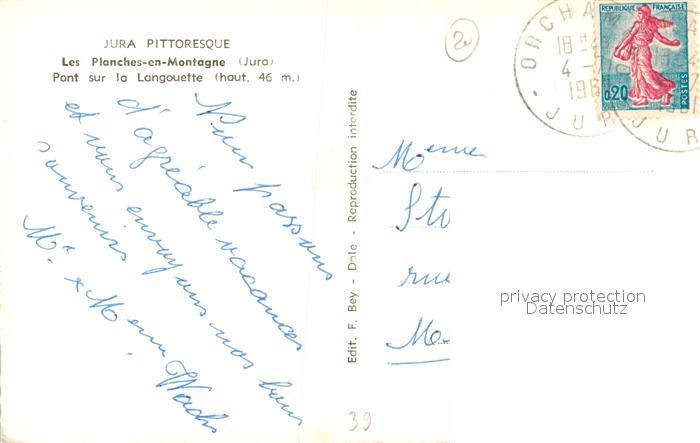 JURA PITTORESQUE
Les Planches-en-Montagne (Jura)
Pont sur la Langouette (haut. 46 m.)
Nous passons
d'agréable vacances
et vous envoyons nos bons
souvenirs
Mr x Mme
Edit. F. Bey - Dole - Reproduction interdite
2
REPUBLIQUE FRANÇAISE
0,20
POSTES
ORCHA
18 H
4 -
196
JURA
JUR
Meme
Sto
rue
Mo
privacy protection
Datenschutz
39